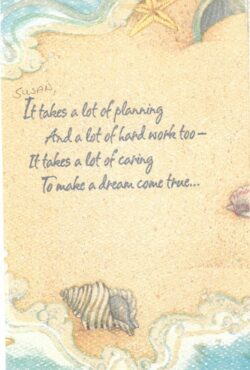 SUSAN,
It takes a lot of planning
And a lot of hard work too–
It takes a lot of caring
To make a dream come true...